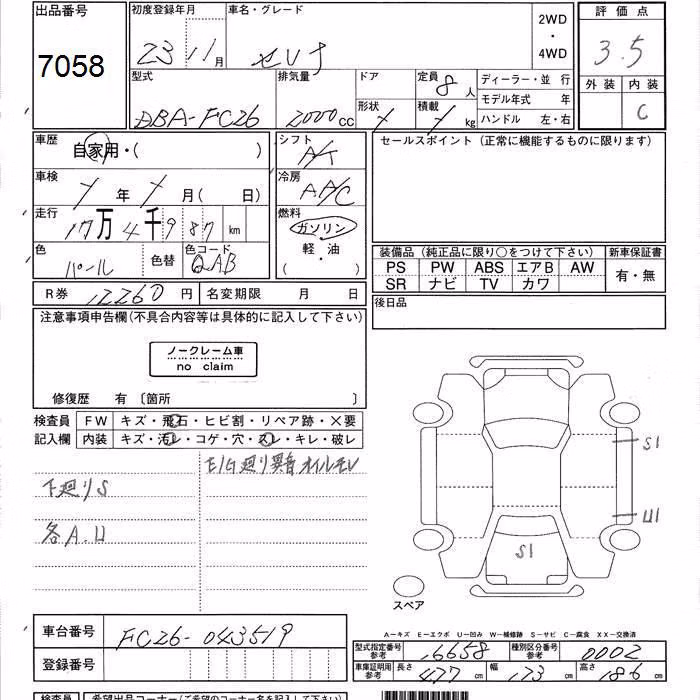 出品番号 初度登録年月 車名・グレード 2WD・4WD 評価点
7058 23 11月 セレナ 3.5
型式 排気量 ドア 定員 8人 ディーラー・並 行 外装 内装
DBA-FC26 2000cc 形状 積載 kg モデル年式 年 C
ハンドル 左・右
車歴 自家用・( ) シフト A/T セールスポイント (正常に機能するものに限ります)
車検 年 月( 日) 冷房 A/C
走行 17万4千987km 燃料 ガソリン
軽・油
( )
色 パール 色替 色コード QAB
装備品 (純正品に限り○をつけて下さい) 新車保証書
PS PW ABS エアB AW 有・無
SR ナビ TV カワ
R券 12260円 名変期限 月 日 後日品
注意事項申告欄(不具合内容等は具体的に記入して下さい)
ノークレーム車
no claim
修復歴 有 〔箇所 〕
検査員 FW キズ・飛石・ヒビ割・リペア跡・×要
記入欄 内装 キズ・汚レ・コゲ・穴・スレ・キレ・破レ
E/G廻り異音オイルモレ
下廻りS
各A.U
S1
U1
S1
スペア
A−キズ E−エクボ U−凹み W−補修跡 S−サビ C−腐食 XX−交換済
車台番号 FC26-043519
登録番号
型式指定番号 参考 16658 種別区分番号 参考 0002
車庫証明用 参考 長さ 477 幅 173 高さ 186
検査員 希望出品コーナー(ご希望のコーナー名をご記入下さい)